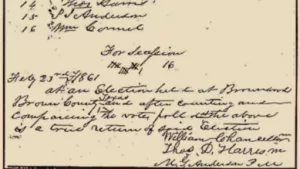 14 Harris
15 S J Anderson
16 Wm Cornet
For Secession
16
Feby 23rd 1861
at an Election held at Brownwood
Brown County Texas and after counting and
Comparing the votes, poll the above
is a true return of said Election
William Chancellor
Thos D. Harris m
M G Anderson